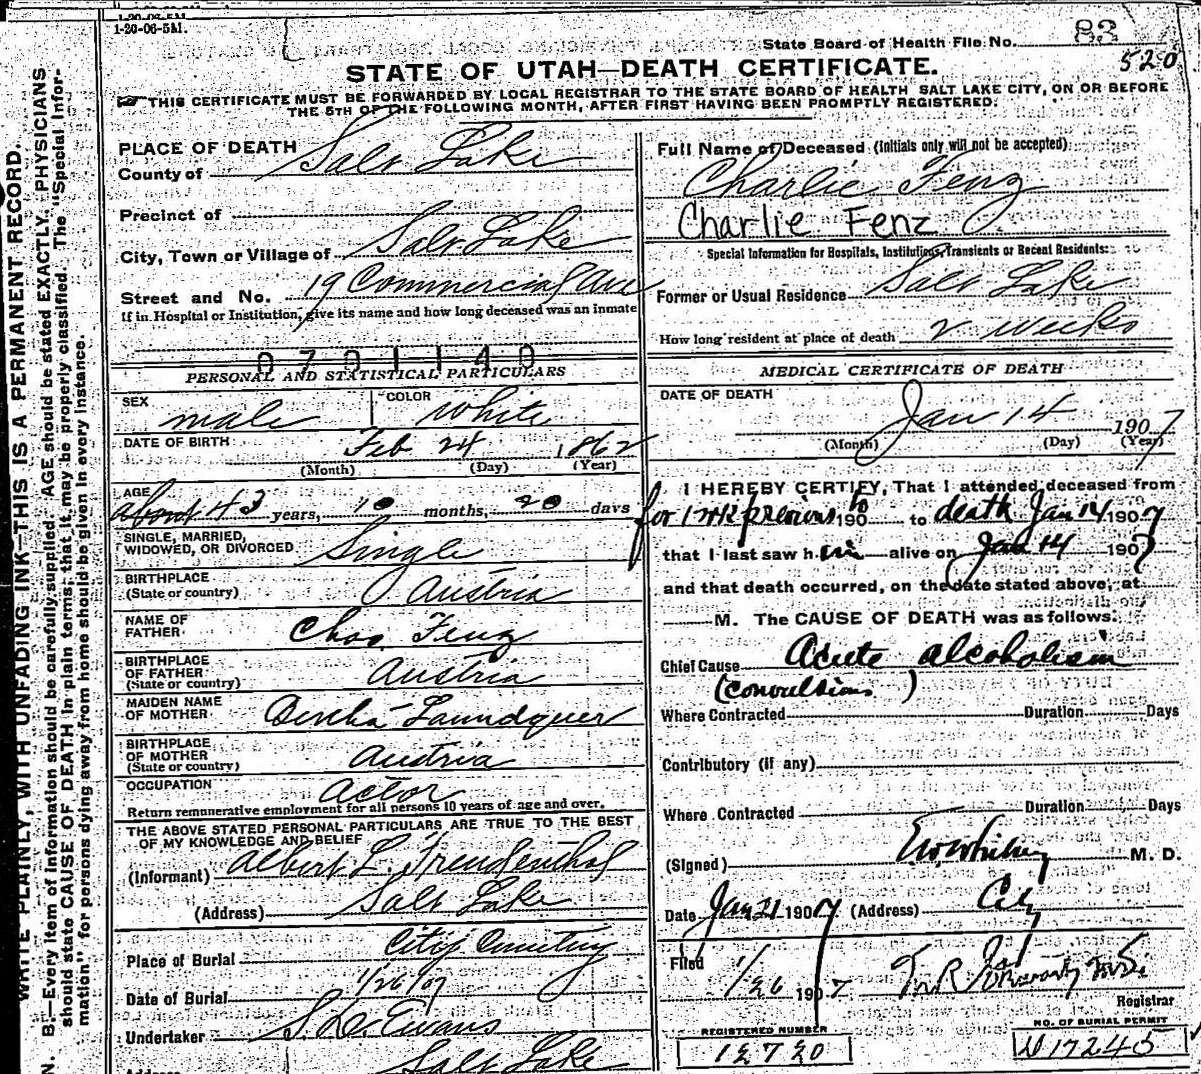 1-20-06-5M.
State Board of Health File No. 83
520
STATE OF UTAH—DEATH CERTIFICATE.
THIS CERTIFICATE MUST BE FORWARDED BY LOCAL REGISTRAR TO THE STATE BOARD OF HEALTH SALT LAKE CITY, ON OR BEFORE
THE 5TH OF THE FOLLOWING MONTH, AFTER FIRST HAVING BEEN PROMPTLY REGISTERED.
WRITE PLAINLY, WITH UNFADING INK—THIS IS A PERMANENT RECORD.
N. B.—Every item of information should be carefully supplied. AGE should be stated EXACTLY. PHYSICIANS
should state CAUSE OF DEATH in plain terms, that it may be properly classified. The "Special Infor-
mation" for persons dying away from home should be given in every instance.
PLACE OF DEATH
County of Salt Lake
Precinct of
City, Town or Village of Salt Lake
Street and No. 19 Commercial Ave
If in Hospital or Institution, give its name and how long deceased was an inmate
0701140
PERSONAL AND STATISTICAL PARTICULARS
SEX male COLOR white
DATE OF BIRTH Feb 24 1862
(Month) (Day) (Year)
AGE about 43 years, 10 months, 20 days
SINGLE, MARRIED,
WIDOWED, OR DIVORCED. Single
BIRTHPLACE
(State or country) Austria
NAME OF
FATHER Chas. Fenz
BIRTHPLACE
OF FATHER
(State or country) Austria
MAIDEN NAME
OF MOTHER Bertha
BIRTHPLACE
OF MOTHER
(State or country) Austria
OCCUPATION Actor
Return remunerative employment for all persons 10 years of age and over.
THE ABOVE STATED PERSONAL PARTICULARS ARE TRUE TO THE BEST
OF MY KNOWLEDGE AND BELIEF
(Informant) Albert L. Freudenthal
(Address) Salt Lake
Place of Burial City Cemetery
Date of Burial 1/26/07
Undertaker S. D. Evans
Address Salt Lake
Full Name of Deceased (Initials only will not be accepted)
Charlie Fenz
Charlie Fenz
Special Information for Hospitals, Institutions, Transients or Recent Residents:
Former or Usual Residence Salt Lake
How long resident at place of death 2 weeks
MEDICAL CERTIFICATE OF DEATH
DATE OF DEATH
Jan 14 1907
(Month) (Day) (Year)
I HEREBY CERTIFY, That I attended deceased from
for 1 wk previous to 190 to death Jan 14 1907
that I last saw him alive on Jan 14 1907
and that death occurred, on the date stated above, at
M. The CAUSE OF DEATH was as follows:
Chief Cause Acute alcoholism
(convulsions)
Where Contracted Duration Days
Contributory (if any)
Where Contracted Duration Days
(Signed) M. D.
Date Jan 21 1907 (Address) City
Filed 1/26 1907
Registrar
REGISTERED NUMBER
12720
NO. OF BURIAL PERMIT
17245